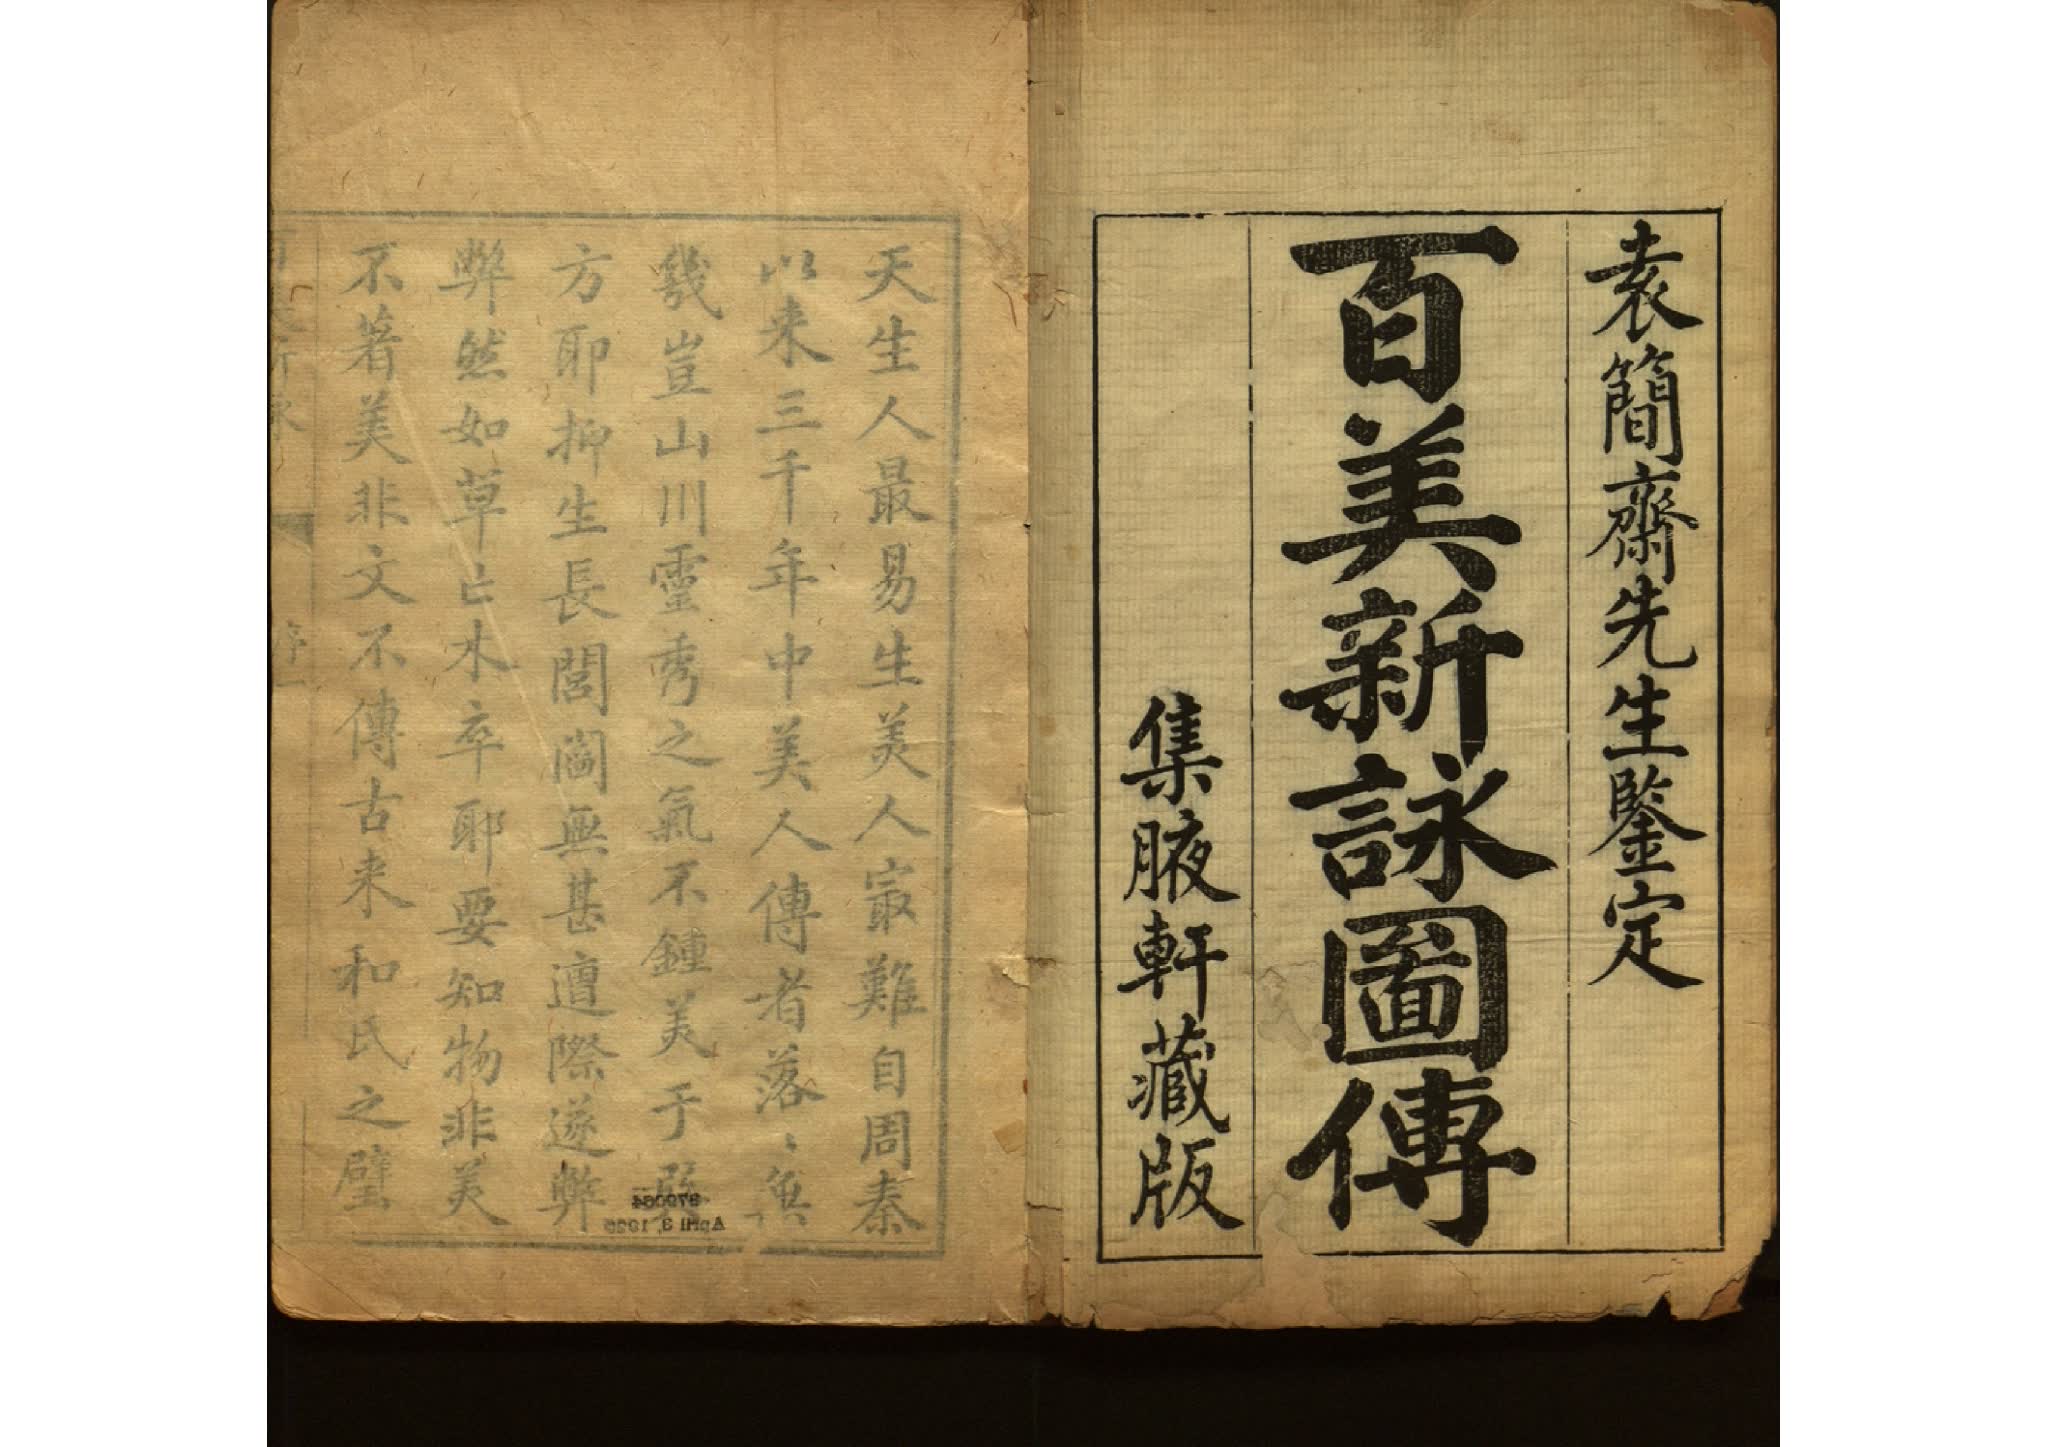 袁簡齋先生鑒定
百美新詠圖傳
集腋軒藏版
天生人最易生美人寂難自周秦
以來三千年中美人傳者落〻無
幾豈山川靈秀之氣不鍾美于
方耶抑生長閭閻無甚遭際遂弊
弊然如草亡木卒耶要知物非美
不著美非文不傳古来和氏之璧
979064
April 3, 1925